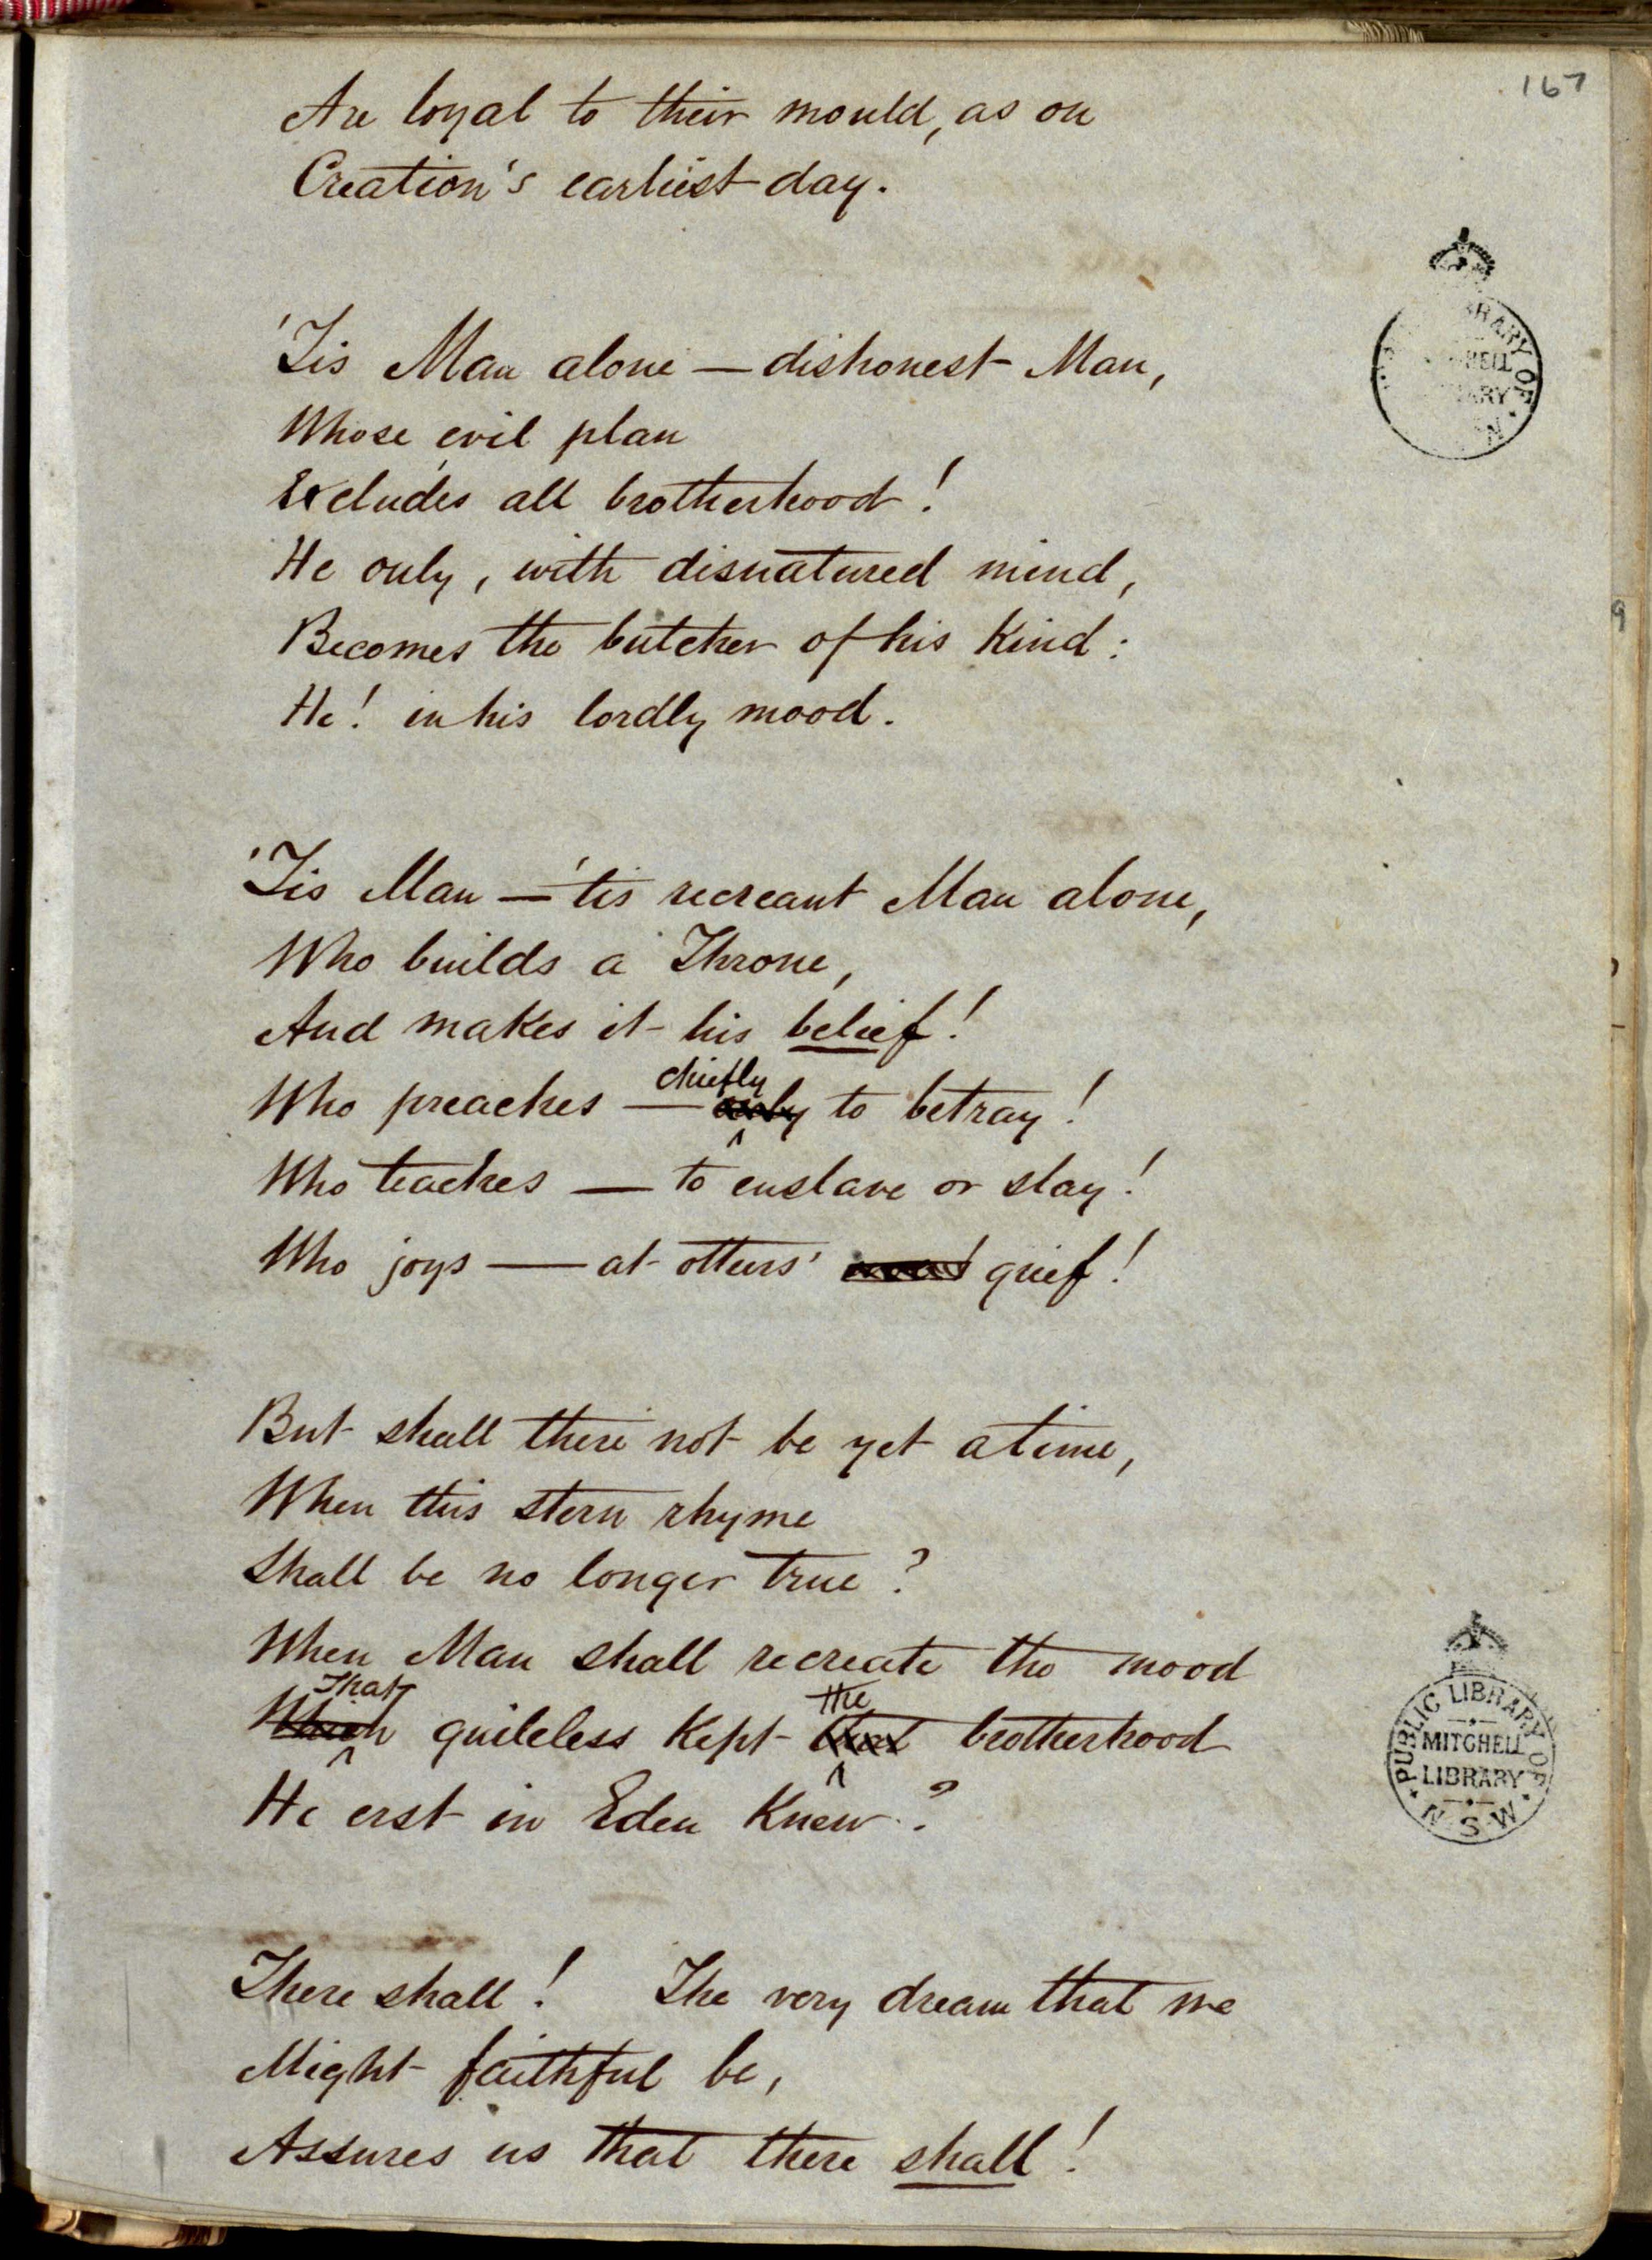 167
Are loyal to their mould, as on
Creation's earliest day.
'Tis Man alone — dishonest Man,
Whose evil plan
Excludes all brotherhood!
He only, with disnatured mind,
Becomes the butcher of his kind:
He! in his lordly mood.
'Tis Man — 'tis recreant Man alone,
Who builds a Throne,
And makes it his belief!
chiefly
Who preaches — only to betray!
Who teaches — to enslave or slay!
Who joys — at others' grief!
But shall there not be yet a time,
When this stern rhyme
Shall be no longer true?
When Man shall recreate the mood
That the
Which guileless kept that brotherhood
He erst in Eden knew?
There shall! The very dream that we
Might faithful be,
Assures us that there shall!
PUBLIC LIBRARY OF
MITCHELL
LIBRARY
N.S.W.